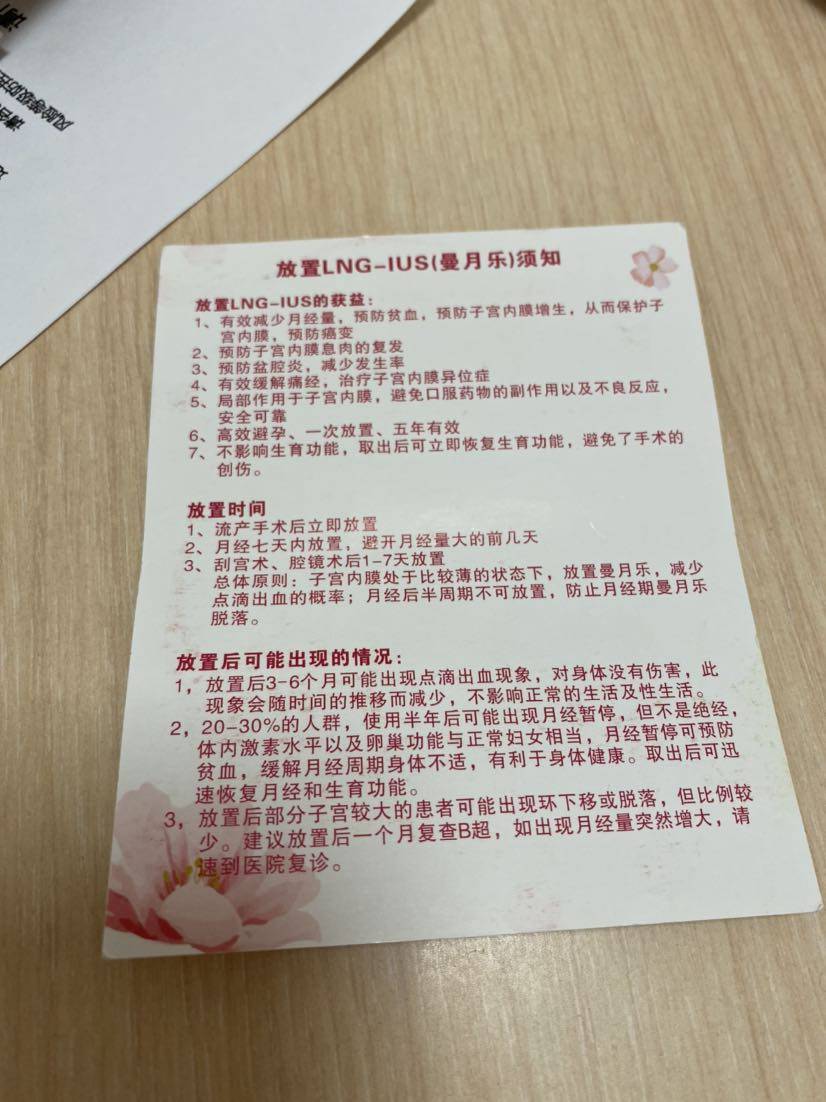 风险等级防控
放置LNG-IUS(曼月乐)须知
放置LNG-IUS的获益：
1、有效减少月经量，预防贫血，预防子宫内膜增生，从而保护子
宫内膜，预防癌变
2、预防子宫内膜息肉的复发
3、预防盆腔炎，减少发生率
4、有效缓解痛经，治疗子宫内膜异位症
5、局部作用于子宫内膜，避免口服药物的副作用以及不良反应，
安全可靠
6、高效避孕、一次放置、五年有效
7、不影响生育功能，取出后可立即恢复生育功能，避免了手术的
创伤。
放置时间
1、流产手术后立即放置
2、月经七天内放置，避开月经量大的前几天
3、刮宫术、腔镜术后1-7天放置
总体原则：子宫内膜处于比较薄的状态下，放置曼月乐，减少
点滴出血的概率；月经后半周期不可放置，防止月经期曼月乐
脱落。
放置后可能出现的情况：
1，放置后3-6个月可能出现点滴出血现象，对身体没有伤害，此
现象会随时间的推移而减少，不影响正常的生活及性生活。
2，20-30%的人群，使用半年后可能出现月经暂停，但不是绝经，
体内激素水平以及卵巢功能与正常妇女相当，月经暂停可预防
贫血，缓解月经周期身体不适，有利于身体健康。取出后可迅
速恢复月经和生育功能。
3，放置后部分子宫较大的患者可能出现环下移或脱落，但比例较
少。建议放置后一个月复查B超，如出现月经量突然增大，请
速到医院复诊。